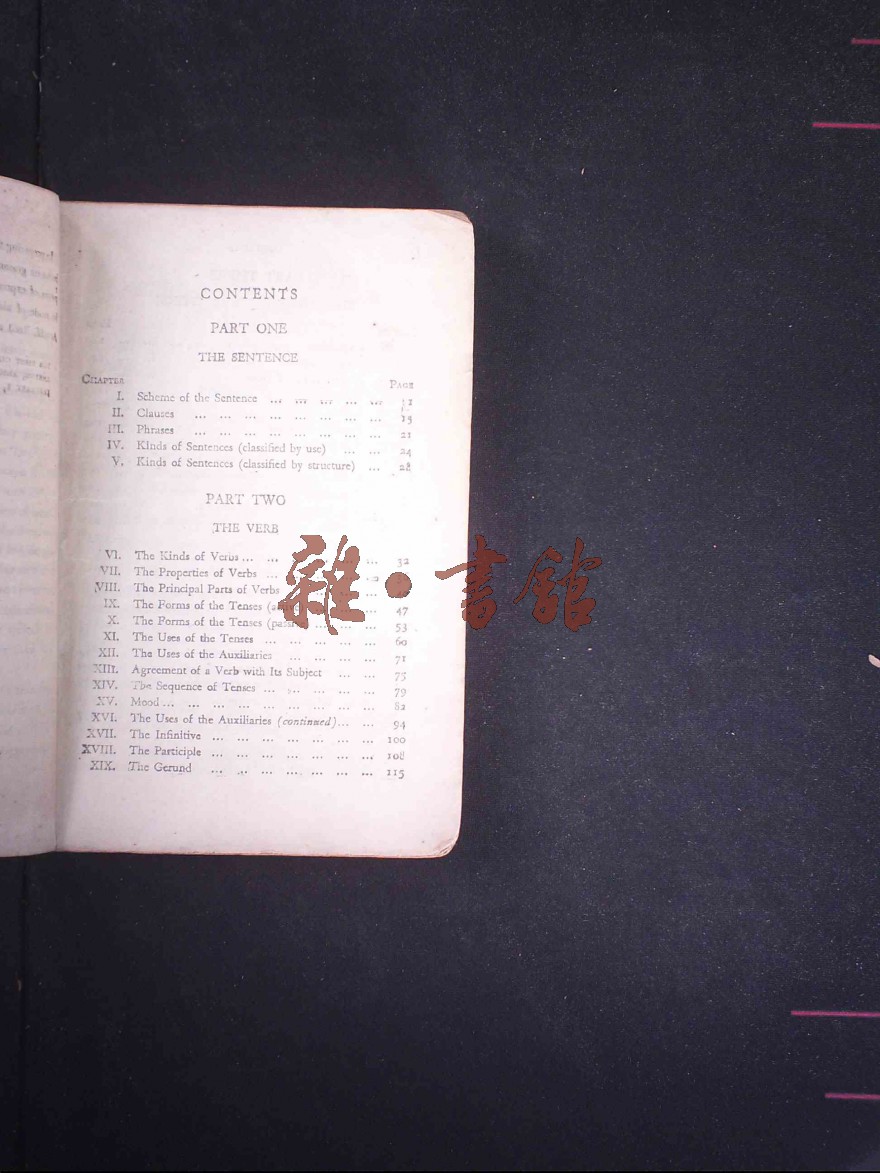 CONTENTS
PART ONE
THE SENTENCE
CHAPTER PAGE
I. Scheme of the Sentence ... ... ... ... ... 12
II. Clauses ... ... ... ... ... ... ... ... 15
III. Phrases ... ... ... ... ... ... ... ... 21
IV. Kinds of Sentences (classified by use) ... ... 24
V. Kinds of Sentences (classified by structure) ... 28
PART TWO
THE VERB
VI. The Kinds of Verbs ... ... ... 32
VII. The Properties of Verbs ...
VIII. The Principal Parts of Verbs
IX. The Forms of the Tenses (active) ... 47
X. The Forms of the Tenses (passive) ... ... ... 53
XI. The Uses of the Tenses ... ... ... ... ... 60
XII. The Uses of the Auxiliaries ... ... ... ... 71
XIII. Agreement of a Verb with Its Subject ... ... 75
XIV. The Sequence of Tenses ... ... ... ... ... 79
XV. Mood ... ... ... ... ... ... ... ... ... 82
XVI. The Uses of the Auxiliaries (continued) ... ... 94
XVII. The Infinitive ... ... ... ... ... ... ... 100
XVIII. The Participle ... ... ... ... ... ... ... 108
XIX. The Gerund ... ... ... ... ... ... ... 115
雜·書館